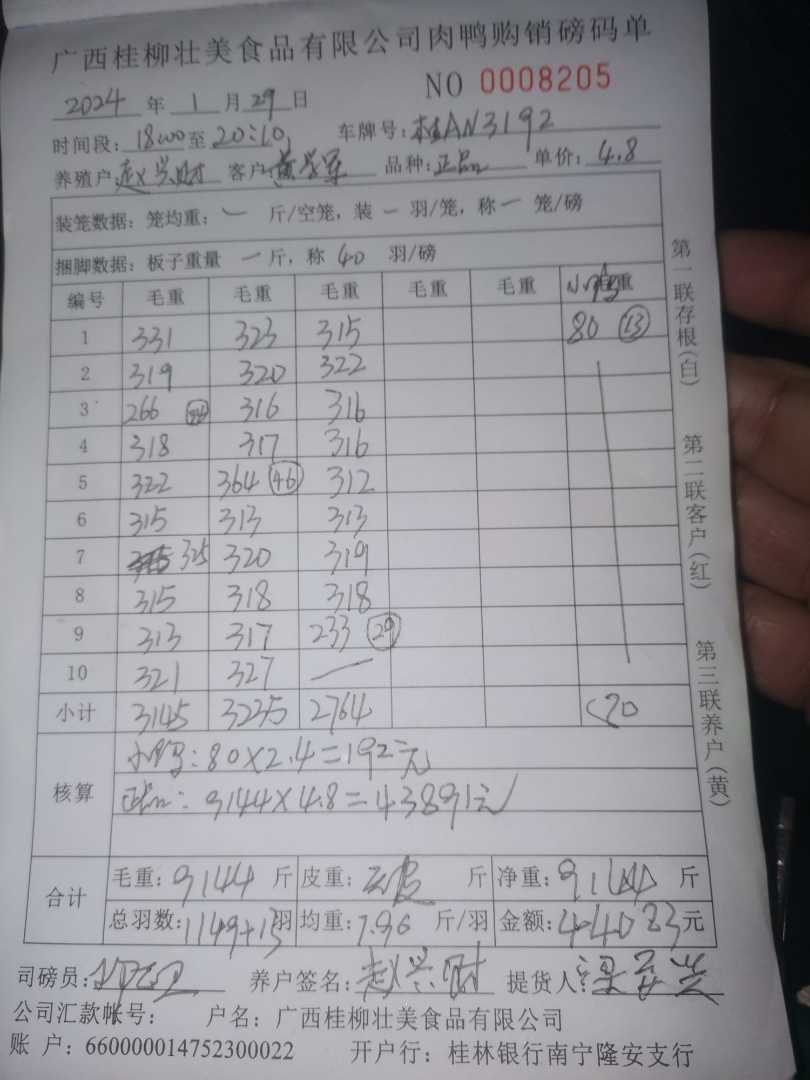 广西桂柳壮美食品有限公司肉鸭购销磅码单
NO 0008205
2024 年 1 月 29 日
时间段: 18:00 至 20:10 车牌号: 桂AN3192
养殖户: 赵兴财 客户: 黄 军 品种: 正品 单价: 4.8
装笼数据: 笼均重: 一 斤/空笼, 装 一 羽/笼, 称 一 笼/磅
捆脚数据: 板子重量 一 斤, 称 40 羽/磅
编号 毛重 毛重 毛重 毛重 毛重 小鸭 重
1 331 323 315 80 (13)
2 319 320 322
3 266 316 316
4 318 317 316
5 322 364 (46) 312
6 315 313 313
7 325 320 319
8 315 318 318
9 313 317 233 (29)
10 321 327 —
小计 3145 3235 2764
核算
小鸭: 80×2.4=192元
正品: 9144×4.8=43891元
合计
毛重: 9144 斤 皮重: 斤 净重: 9144 斤
总羽数: 1149+13 羽 均重: 7.96 斤/羽 金额: 44083 元
司磅员: 养户签名: 赵兴财 提货人: 梁
公司汇款帐号: 户名: 广西桂柳壮美食品有限公司
账 户: 660000014752300022 开户行: 桂林银行南宁隆安支行
第一联存根(白)
第二联客户(红)
第三联养户(黄)